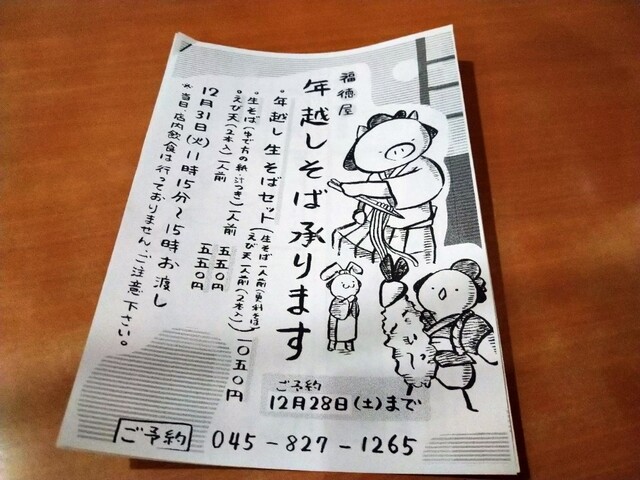 福徳屋
年越しそば承ります
・年越し生そばセット(生そば一人前(更科そば) えび天一人前(2本入))一〇五〇円
・生そば(ゆで方の紙・汁つき)一人前 五五〇円
・えび天(2本入)一人前 五五〇円
12月31日(火)11時15分〜15時お渡し
※当日、店内飲食は行っておりません。ご注意下さい。
ご予約
12月28日(土)まで
ご予約 045-827-1265